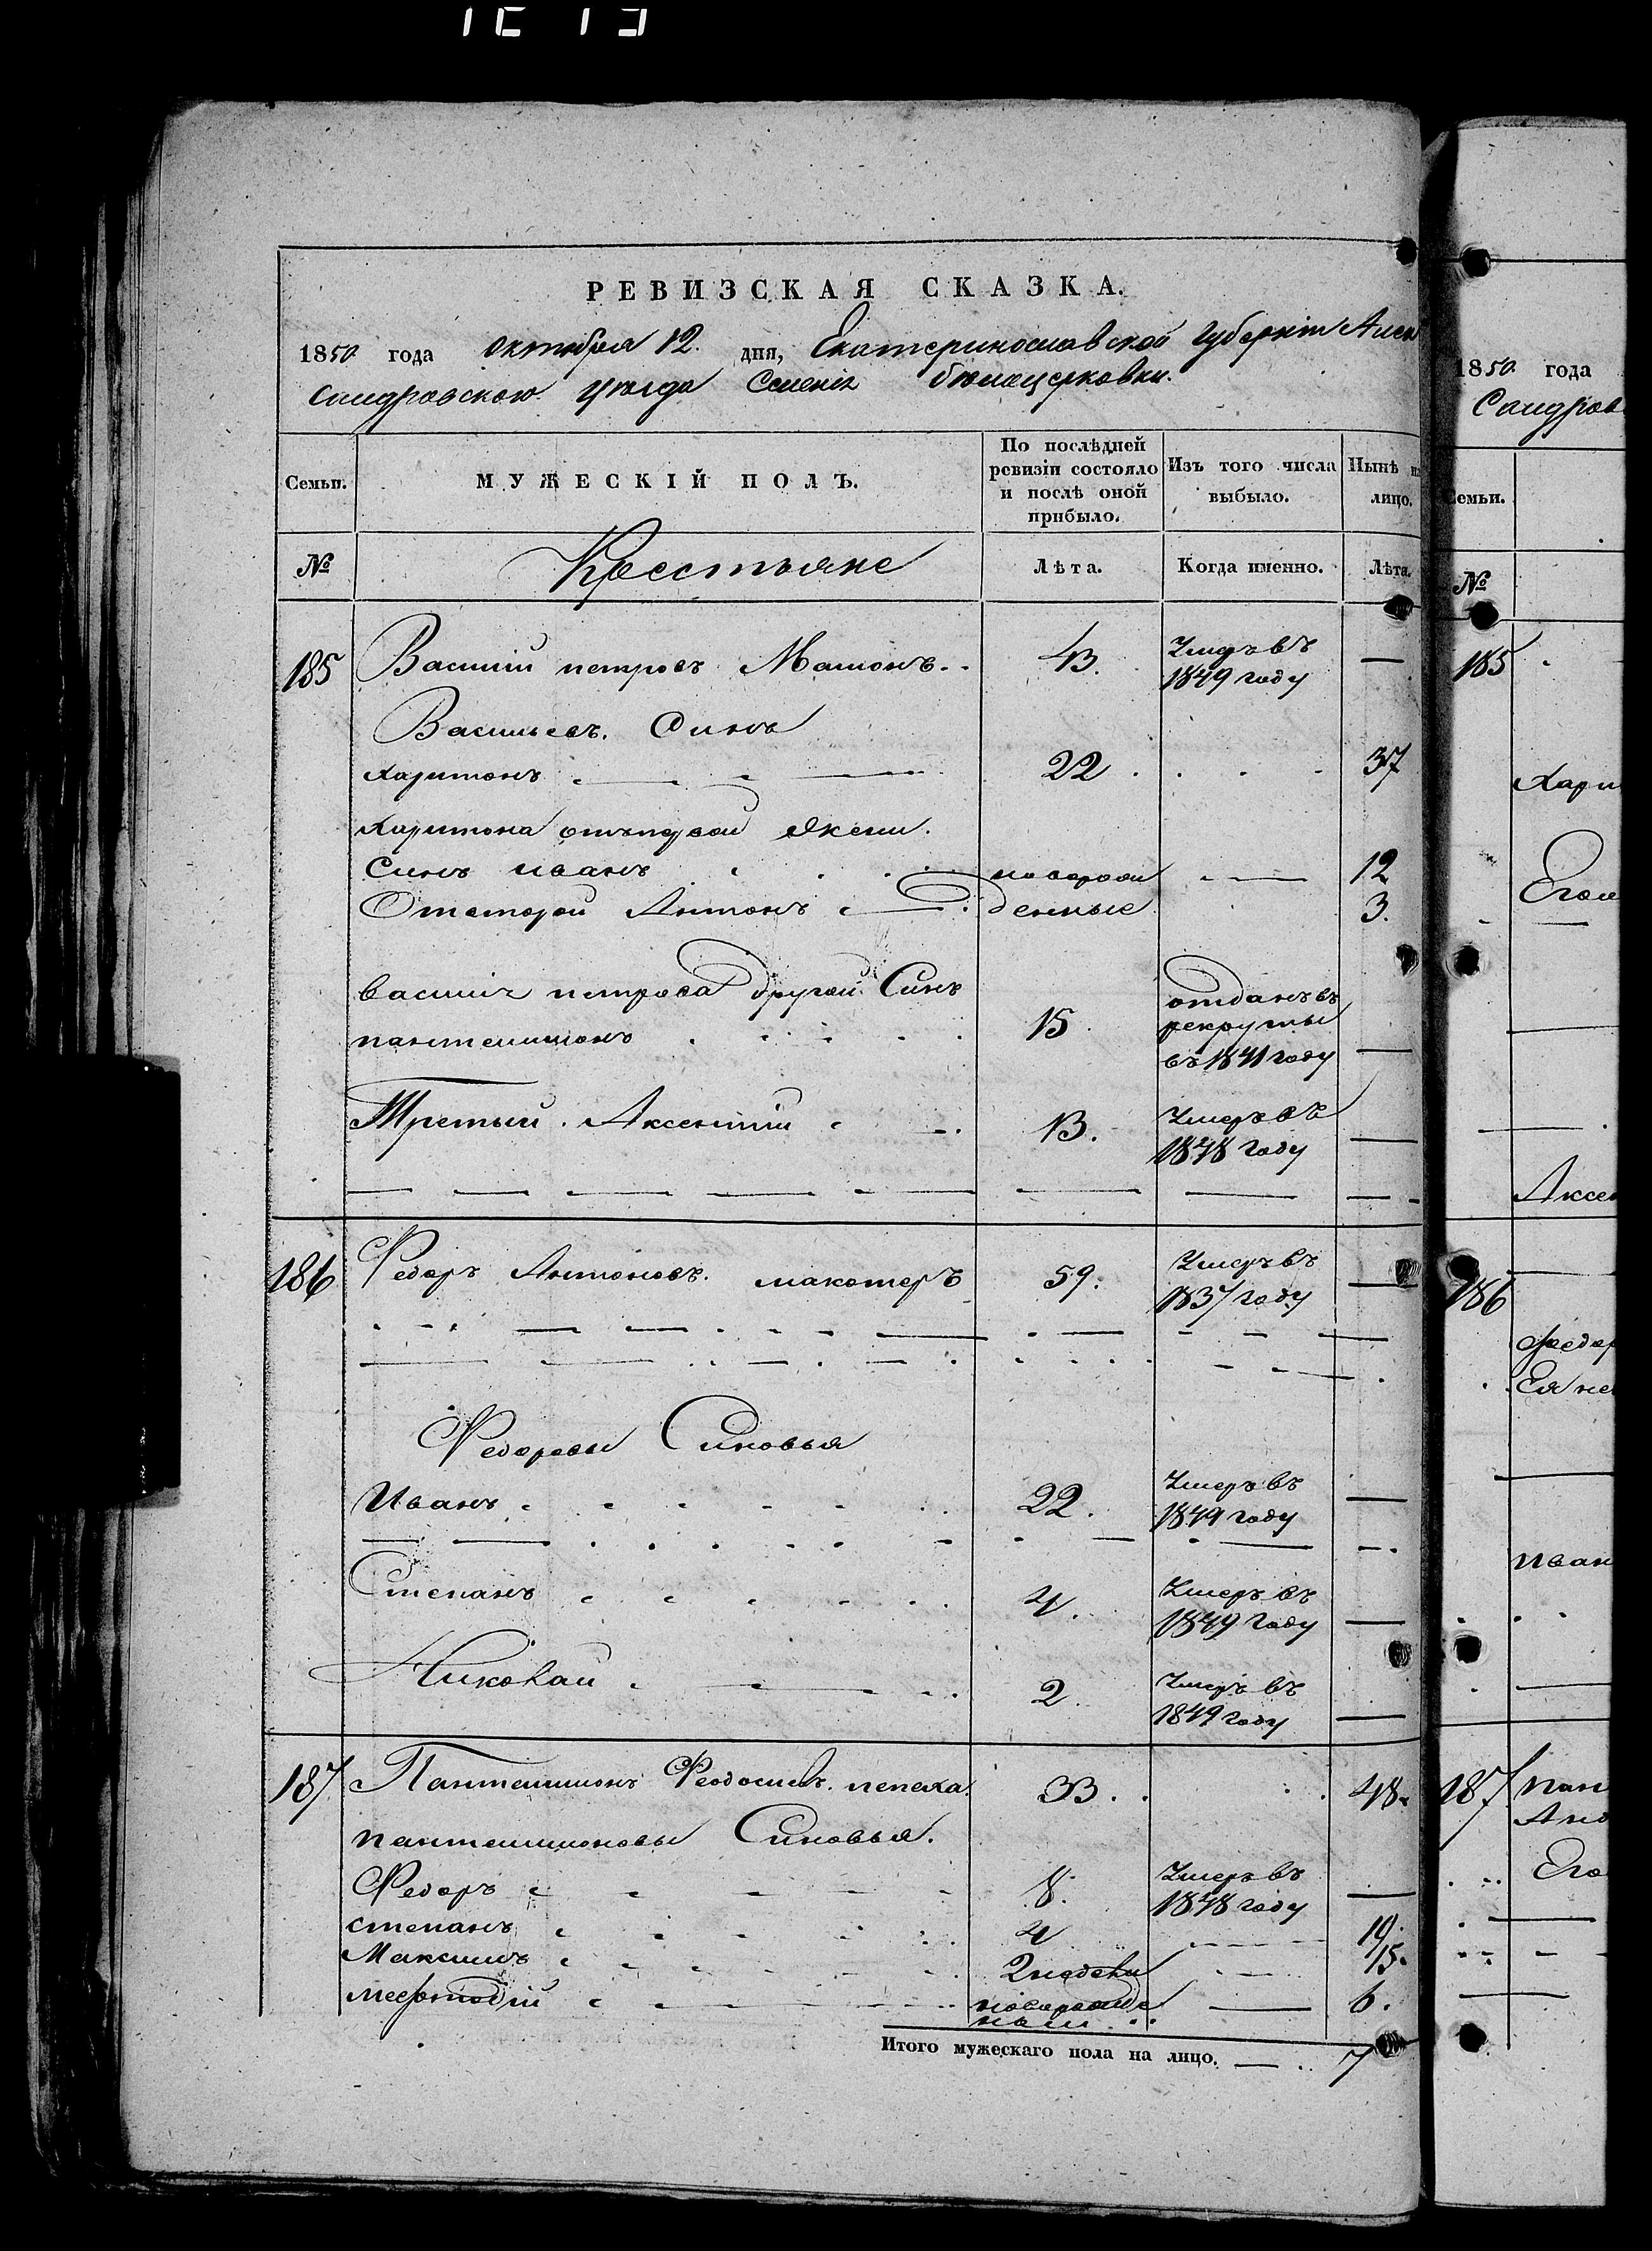 РЕВИЗСКАЯ СКАЗКА.
1850 года октября 12. дня, Екатеринославской Губерніи Алек
сандровскою уѣзда Селенія бѣлоцерковки.
Семьи. МУЖЕСКІЙ ПОЛЪ. По послѣдней ревизіи состояло и послѣ оной прибыло. Изъ того числа выбыло. Нынѣ на лицо.
№ Крестьяне Лѣта. Когда именно. Лѣта.
185 Василій петровъ Мамонъ 43. Умеръ въ 1849 году —
Васильевъ. Синъ
Харитонъ 22 37
Харитона отъпервой Жени.
Синъ иванъ новорож 12
Отвторой Антонъ денные 3.
василія петрова другой Синъ
пантелимонъ 15 отданъ въ рекруты въ 1841 году —
Третый Аксентій 13. Умеръ въ 1848 году —
186 Федоръ Антоновъ. макотеръ 59. Умеръ въ 1837 году —
Федоровы Синовья
Иванъ 22. Умеръ въ 1849 году —
Степанъ 4. Умеръ въ 1849 году —
Николай 2 Умеръ въ 1849 году —
187 Пантелимонъ Феодосіевъ. пепеха 33. 48.
пантелимоновы Синовья.
Федоръ 8. Умеръ въ 1848 году —
степанъ 4 19.
Максимъ 2 недели 15.
Мефтодій новорожде ный 6.
Итого мужескаго пола на лицо. 7
1850 года
Сандров
Семьи.
№
185
Хари
Его
Аксен
186
федор
Ея
иван
187 пан
Его